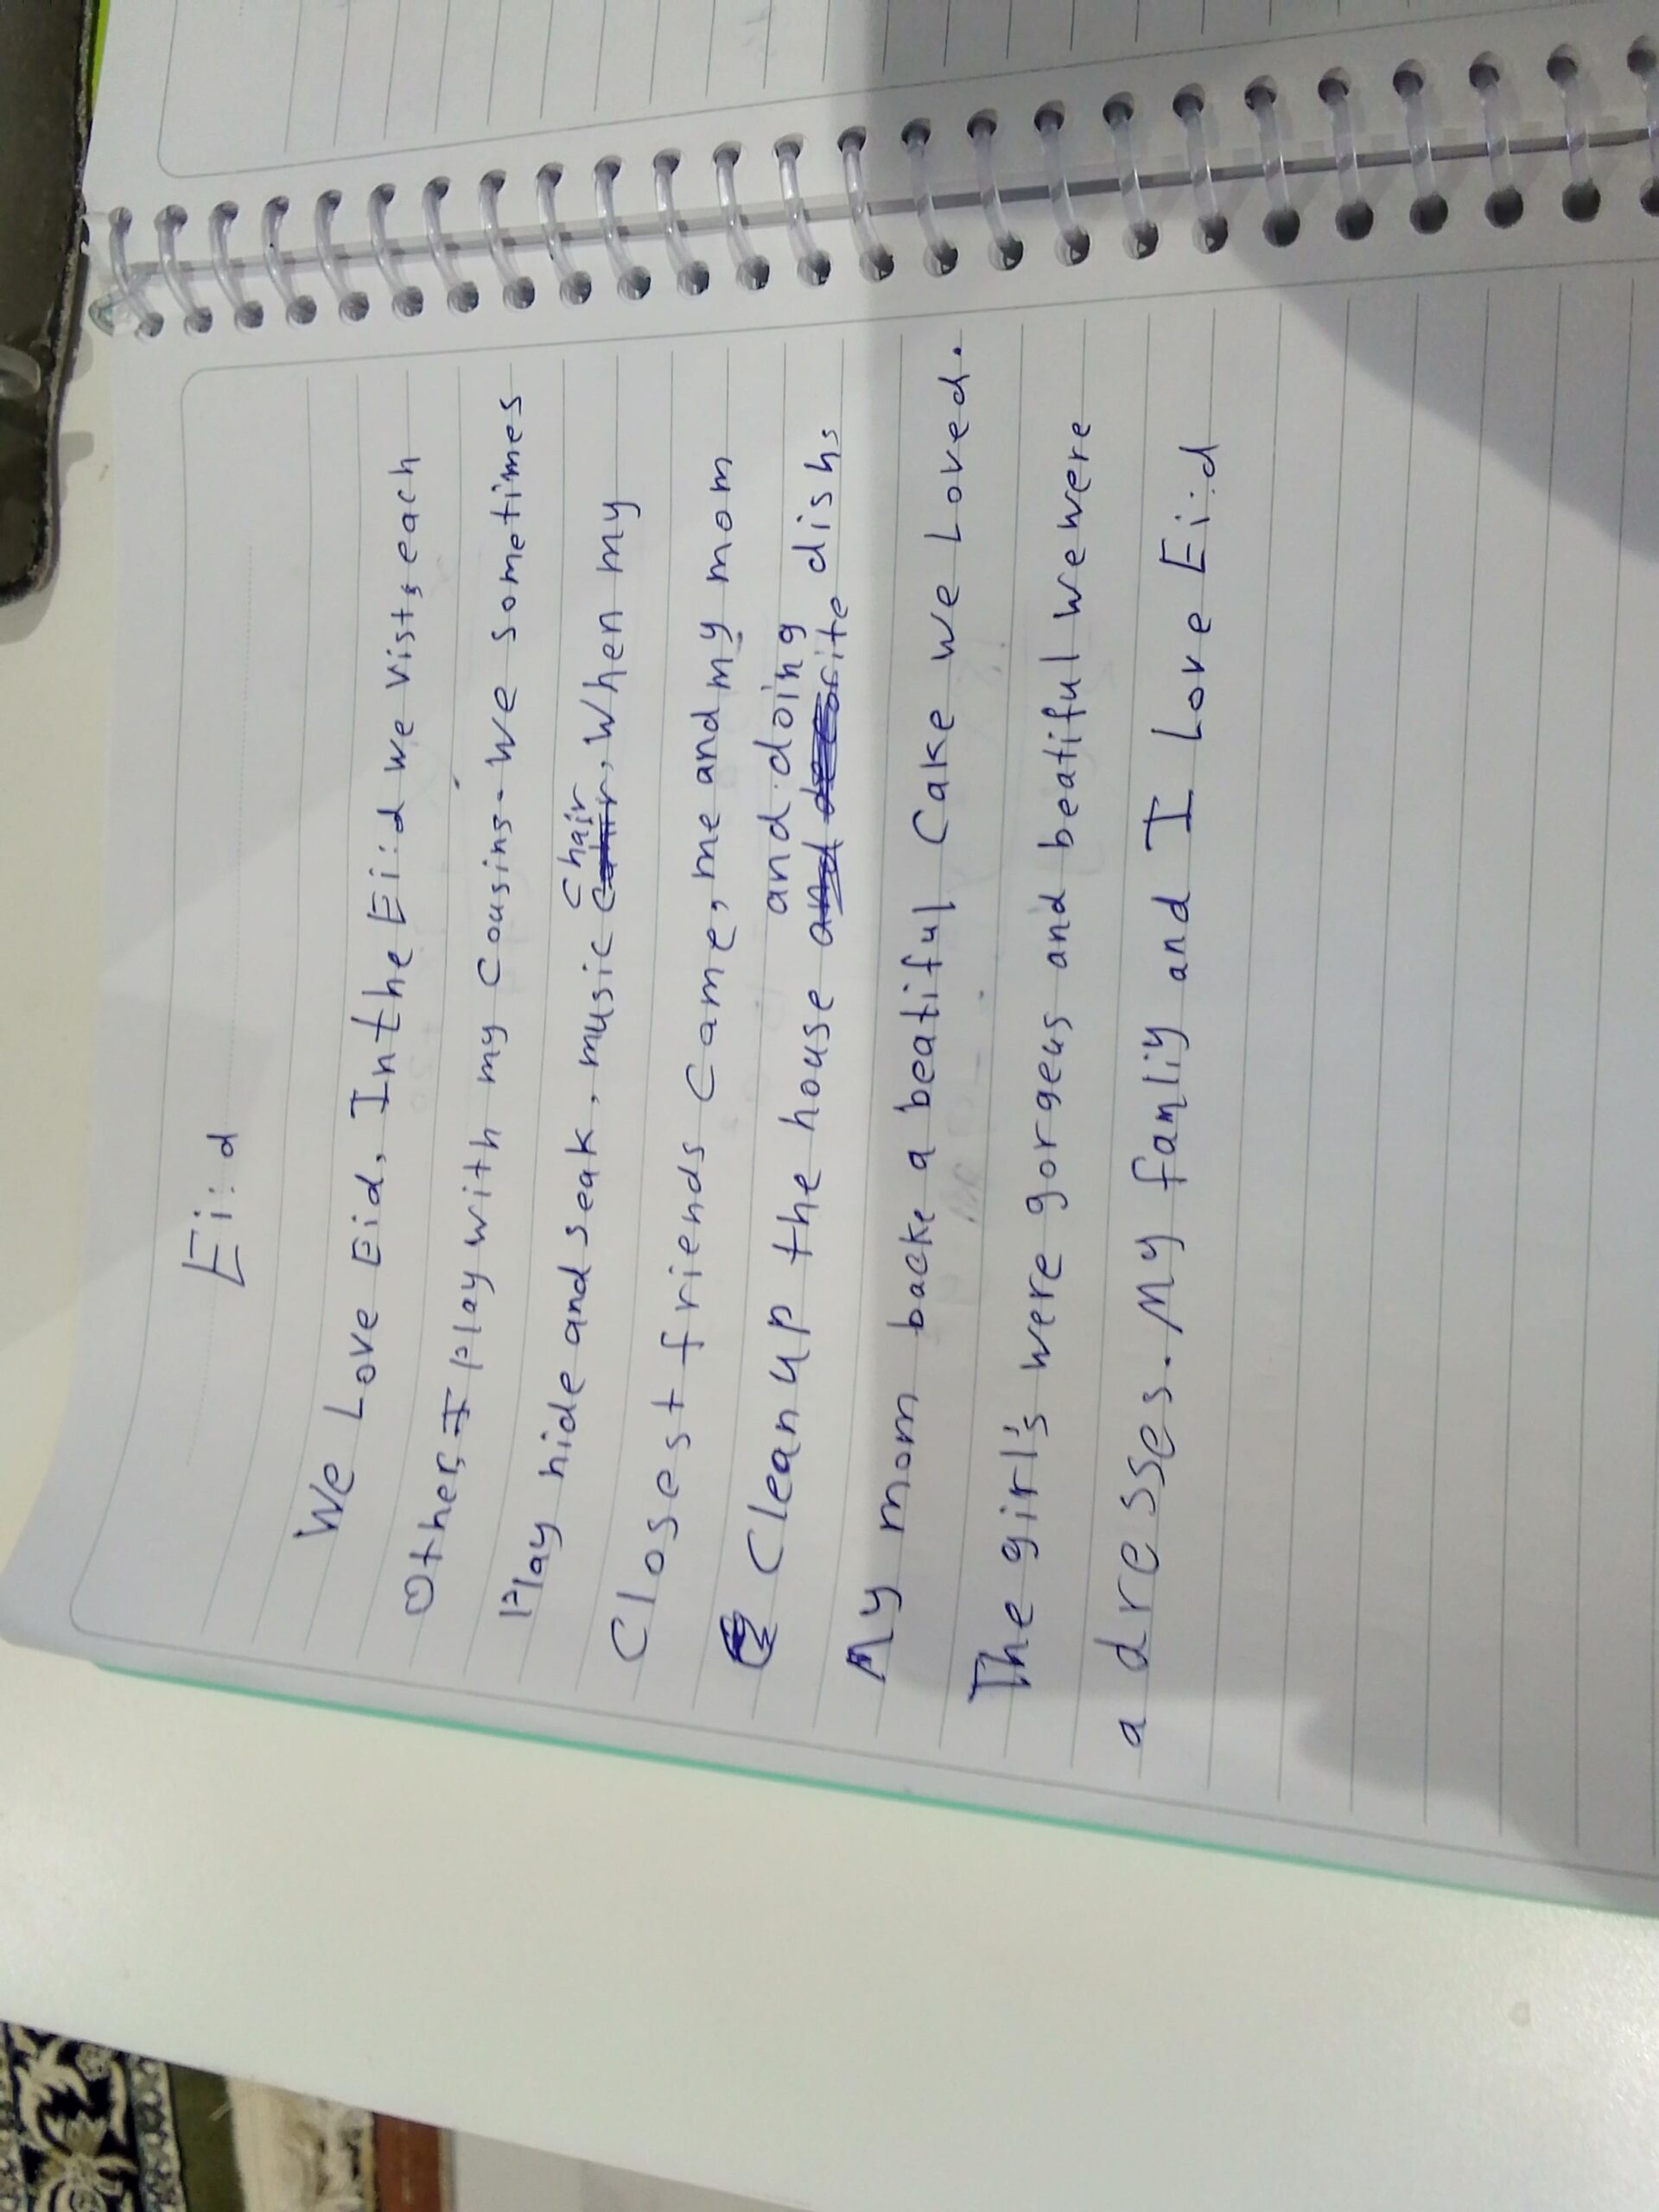 Eid
We Love Eid, In the Eid we vists each
Other, I Play with my cousins. We sometimes
Play hide and seak, music chair, When my
Closest friends came, me and my mom
Clean up the house and doing dishs
My mom backe a beatiful Cake we Loved.
The girl's were gorgeus and beatiful we were
a dresses. My famliy and I Love Eid